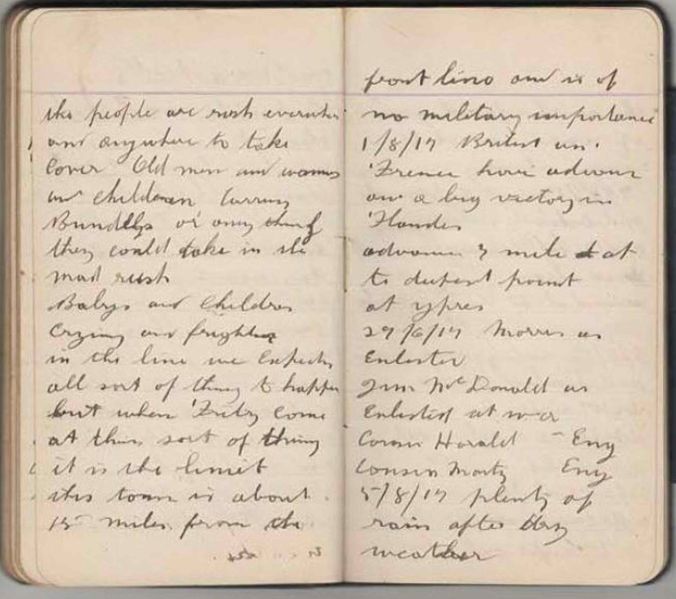 the people are rush everwher
and anywhere to take
Cover Old men and women
and Children Carring
Bundlys or any thing
they could take in the
mad rush
Babys and Children
Crying and frighten
in the line we Expects
all sort of thing to happen
but when Fritz Come
at this sort of thing
it is the limit
this town is about
15 miles from the
front line and is of
no military importance
1/8/17 British an
French have advanc
on a big victory in
Flandes
advance 3 mile at
to deepest point
at ypres
29/6/17 Morris as
Enlisted
Jim McDonald as
Enlisted at
Harald - Eng
Cousin Morty Eng
5/8/17 plenty of
rain after dry
weather